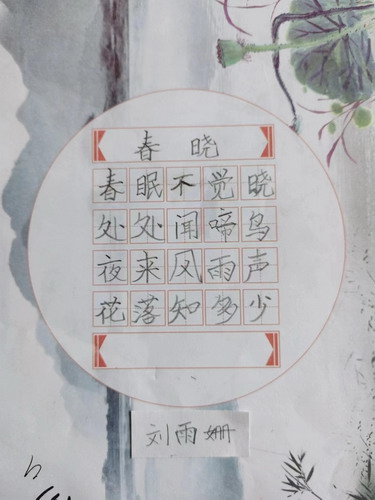 春晓
春眠不觉晓
处处闻啼鸟
夜来风雨声
花落知多少
刘雨姗